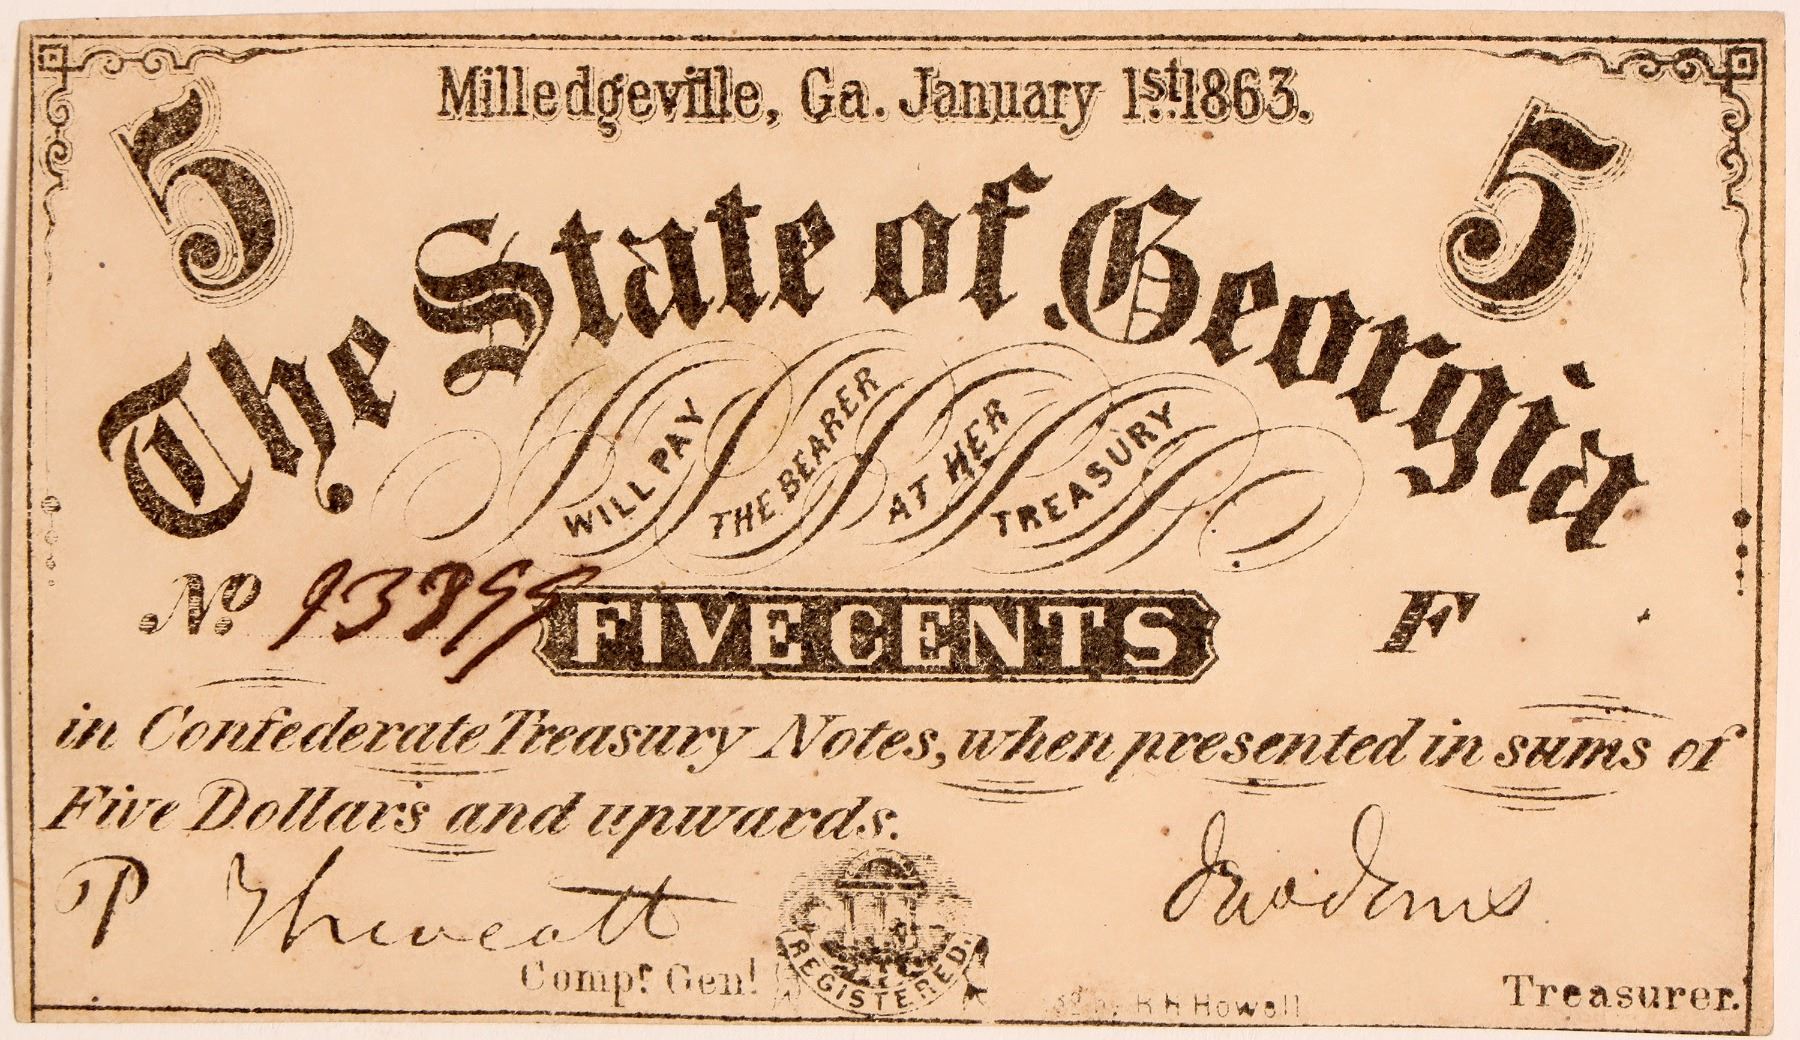 Milledgeville, Ga. January 1st. 1863.
5
5
The State of Georgia
WILL PAY
THE BEARER
AT HER
TREASURY
No 93899
FIVE CENTS
F
in Confederate Treasury Notes, when presented in sums of
Five Dollars and upwards.
P Thweatt
Jno Jones
Comp.r Gen.l
REGISTERED.
R H Howell
Treasurer.